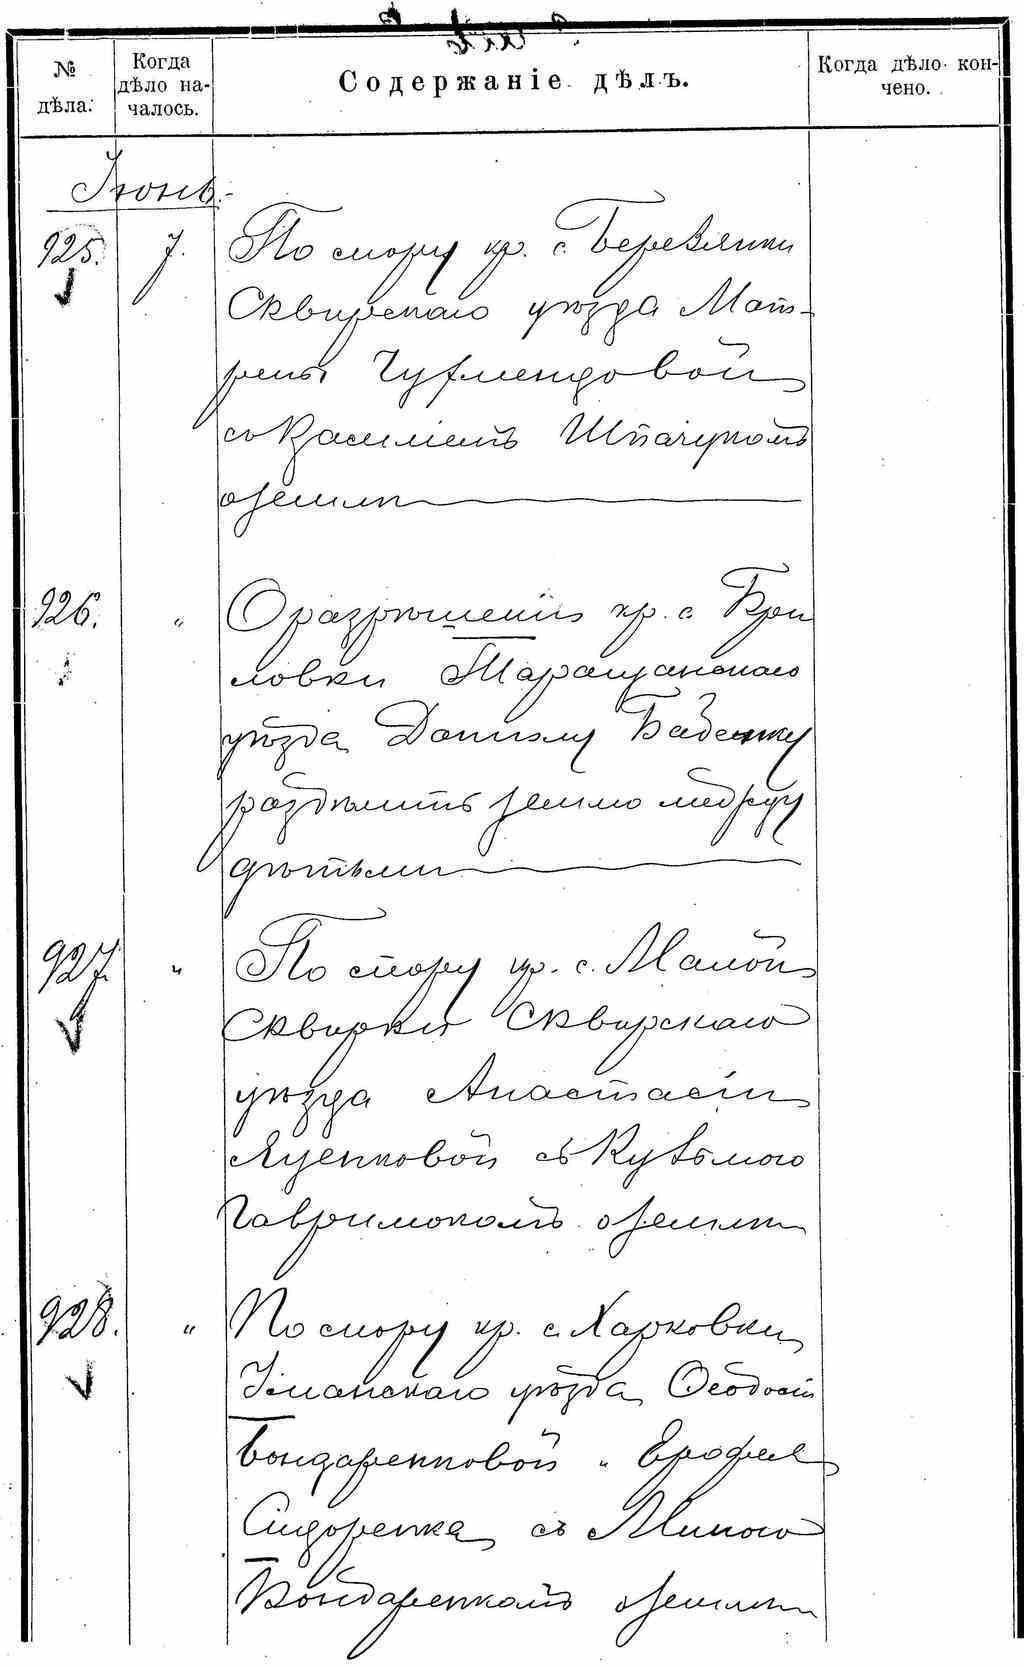 № дѣла.
Когда дѣло на-чалось.
Содержаніе дѣлъ.
Когда дѣло кон-чено.
Іюнь.
925. 7. По спору кр. с. Беревлянки
Сквирскаго уѣзда Мат-
рены
съ Василіемъ Шпачукомъ
о землѣ
926. " О разрѣшеніи кр. с. Бри
ловки Таращанскаго
уѣзда Данилу Бабенку
раздѣлить землю между
дѣтьми
927. " По спору кр. с. Малой
Сквирки Сквирскаго
уѣзда Анастасіи
Яценковой съ Кузьмою
Гаврилюкомъ о землѣ
928. " По спору кр. с. Харковки
Уманскаго уѣзда Ѳеодосіи
Бондаренковой и Ерофея
Сидоренка съ Миною
Бондаренкомъ о землѣ